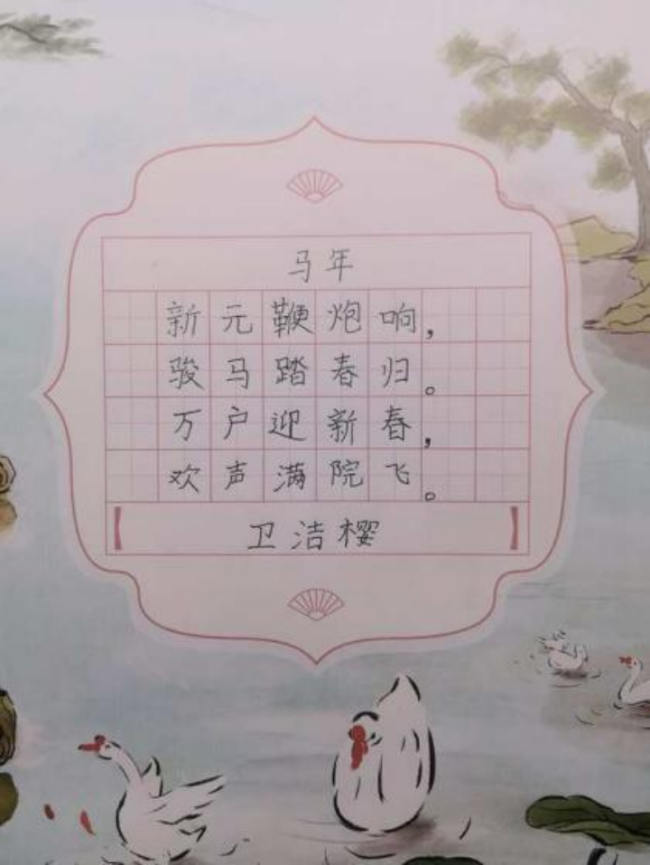 马年
新元鞭炮响，
骏马踏春归。
万户迎新春，
欢声满院飞。
【卫洁樱】